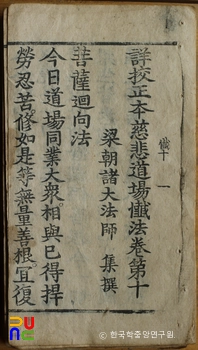 詳校正本慈悲道場懺法卷第十
梁朝諸大法師 集撰
菩薩迴向法
今日道場同業大衆相與已得捍
勞忍苦修如是等無量善根宜復
懺十 一
RUNS
© 한국학중앙연구원